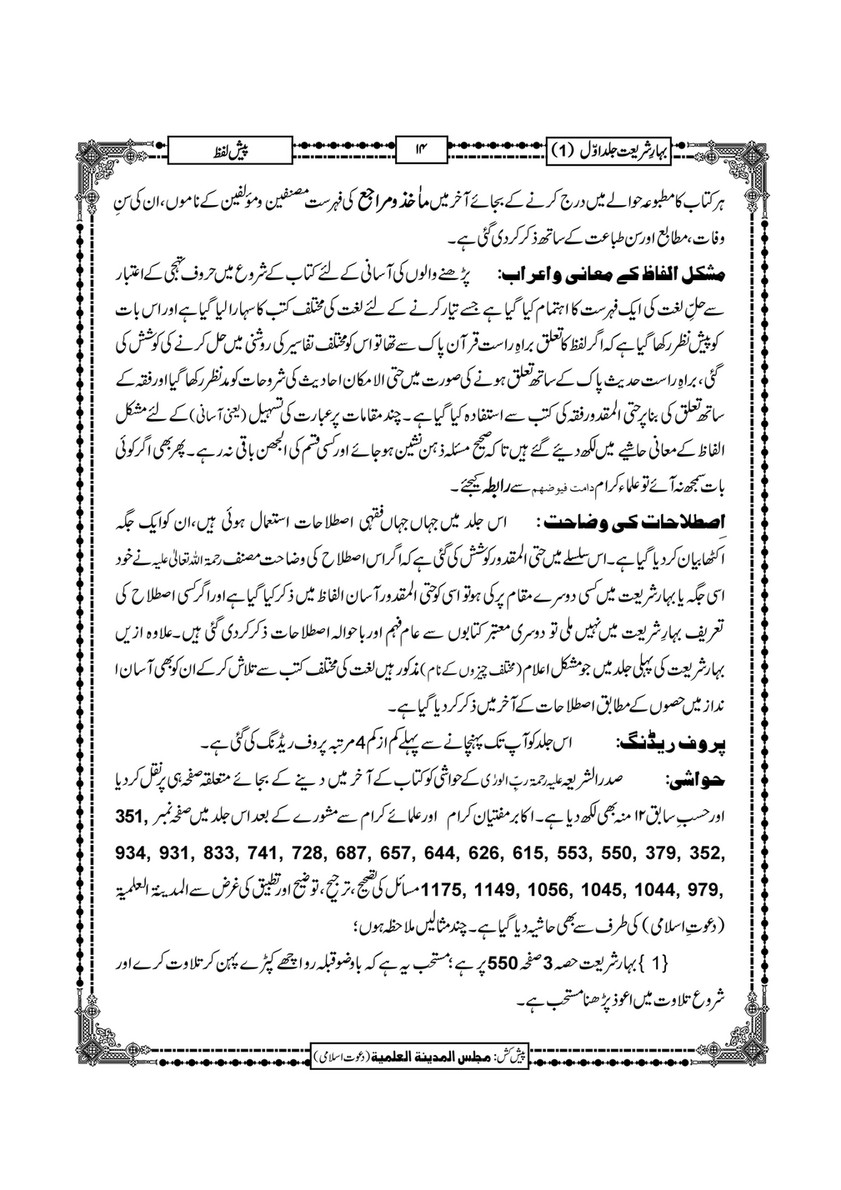 بہارِ شریعت جلد اوّل (1)
۱۴
پیش لفظ
ہر کتاب کا مطبوعہ حوالے میں درج کرنے کے بجائے آخر میں مآخذ و مراجع کی فہرست مصنفین و مؤلفین کے ناموں، ان کی سنِ
وفات، مطابع اور سن طباعت کے ساتھ ذکر کر دی گئی ہے۔
مشکل الفاظ کے معانی و اعراب: پڑھنے والوں کی آسانی کے لئے کتاب کے شروع میں حروف تہجی کے اعتبار
سے حلِ لغت کی ایک فہرست کا اہتمام کیا گیا ہے جسے تیار کرنے کے لئے لغت کی مختلف کتب کا سہارا لیا گیا ہے اور اس بات
کو پیش نظر رکھا گیا ہے کہ اگر لفظ کا تعلق براہِ راست قرآن پاک سے تھا تو اس کو مختلف تفاسیر کی روشنی میں حل کرنے کی کوشش کی
گئی، براہِ راست حدیث پاک کے ساتھ تعلق ہونے کی صورت میں حتی الامکان احادیث کی شروحات کو مدنظر رکھا گیا اور فقہ کے
ساتھ تعلق کی بنا پر حتی المقدور فقہ کی کتب سے استفادہ کیا گیا ہے۔ چند مقامات پر عبارت کی تسہیل (یعنی آسانی) کے لئے مشکل
الفاظ کے معانی حاشیے میں لکھ دیئے گئے ہیں تاکہ صحیح مسئلہ ذہن نشین ہو جائے اور کسی قسم کی الجھن باقی نہ رہے۔ پھر بھی اگر کوئی
بات سمجھ نہ آئے تو علماء کرام دامت فیوضھم سے رابطہ کیجئے۔
اصطلاحات کی وضاحت: اس جلد میں جہاں جہاں فقہی اصطلاحات استعمال ہوئی ہیں، ان کو ایک جگہ
اکٹھا بیان کر دیا گیا ہے۔ اس سلسلے میں حتی المقدور کوشش کی گئی ہے کہ اگر اس اصطلاح کی وضاحت مصنف رحمۃ اللہ تعالیٰ علیہ نے خود
اسی جگہ یا بہارِ شریعت میں کسی دوسرے مقام پر کی ہو تو اسی کو حتی المقدور آسان الفاظ میں ذکر کیا گیا ہے اور اگر کسی اصطلاح کی
تعریف بہارِ شریعت میں نہیں ملی تو دوسری معتبر کتابوں سے عام فہم اور با حوالہ اصطلاحات ذکر کر دی گئی ہیں۔ علاوہ ازیں
بہارِ شریعت کی پہلی جلد میں جو مشکل اعلام (مختلف چیزوں کے نام) مذکور ہیں لغت کی مختلف کتب سے تلاش کر کے ان کو بھی آسان ا
نداز میں حصوں کے مطابق اصطلاحات کے آخر میں ذکر کر دیا گیا ہے۔
پروف ریڈنگ: اس جلد کو آپ تک پہنچانے سے پہلے کم از کم 4 مرتبہ پروف ریڈنگ کی گئی ہے۔
حواشی: صدر الشریعہ علیہ رحمۃ ربّ الورٰی کے حواشی کو کتاب کے آخر میں دینے کے بجائے متعلقہ صفحہ ہی پر نقل کر دیا
اور حسبِ سابق ۱۲ منہ بھی لکھ دیا ہے۔ اکابر مفتیان کرام اور علمائے کرام سے مشورے کے بعد اس جلد میں صفحہ نمبر 351,
352, 379, 550, 553, 615, 626, 644, 657, 687, 728, 741, 833, 931, 934,
979, 1044, 1045, 1056, 1149, 1175 مسائل کی تصحیح، ترجیح، توضیح اور تطبیق کی غرض سے المدینۃ العلمیۃ
(دعوتِ اسلامی) کی طرف سے بھی حاشیہ دیا گیا ہے۔ چند مثالیں ملاحظہ ہوں؛
{1} بہارِ شریعت حصہ 3 صفحہ 550 پر ہے؛ مستحب یہ ہے کہ با وضو قبلہ رو اچھے کپڑے پہن کر تلاوت کرے اور
شروع تلاوت میں اعوذ پڑھنا مستحب ہے۔
پیش کش: مجلس المدینۃ العلمیۃ (دعوت اسلامی)